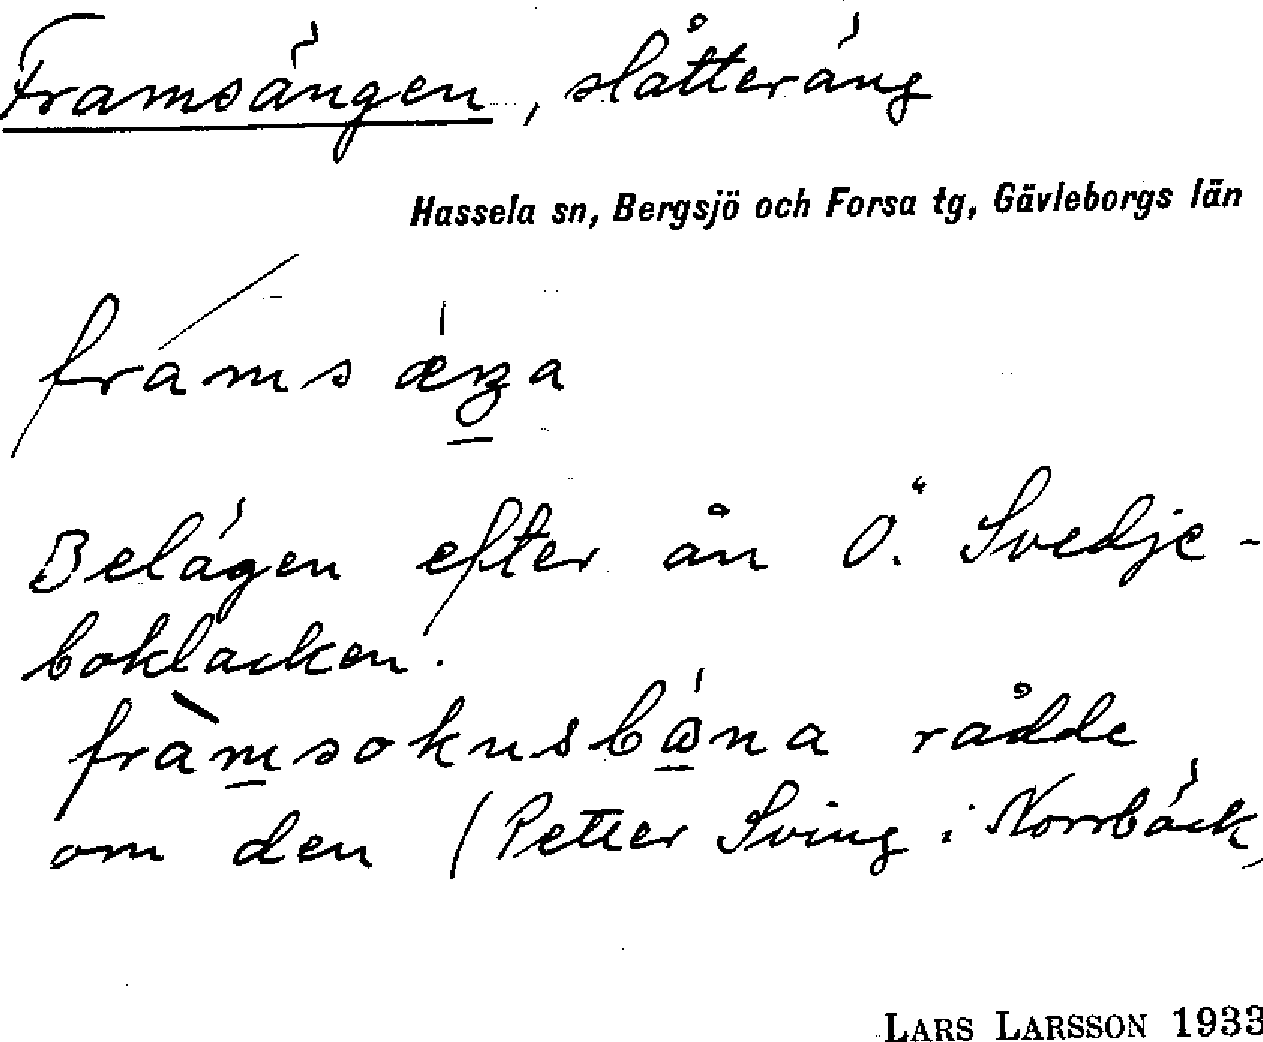 Framsängen, slåtteräng
Hassela sn, Bergsjö och Forsa tg, Gävleborgs län
framsæŋa
Belägen efter ån Ö. Svedje-
boklacken.
framsokusbɷna rådde
om den (Petter Sving i Norrbäck,
LARS LARSSON 1933